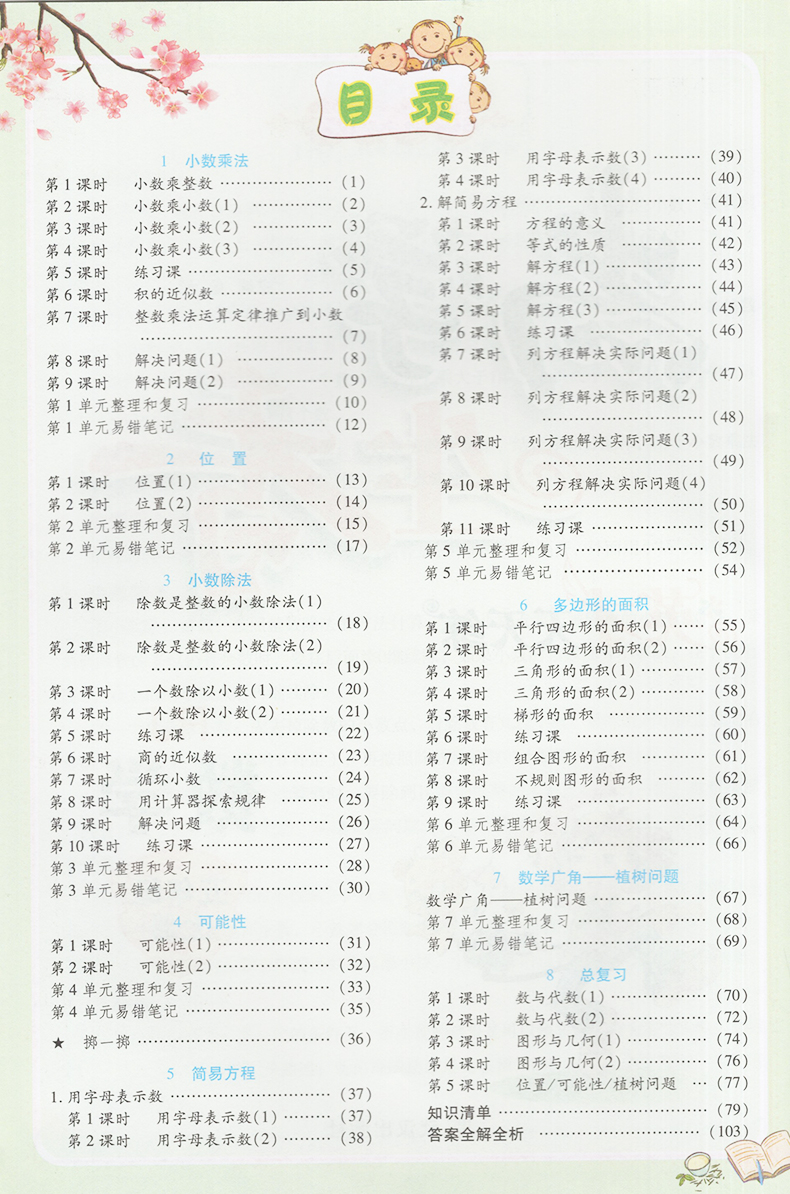 目录
1 小数乘法
第1课时 小数乘整数 ………………… (1)
第2课时 小数乘小数(1) ……………… (2)
第3课时 小数乘小数(2) ……………… (3)
第4课时 小数乘小数(3) ……………… (4)
第5课时 练习课 ……………………… (5)
第6课时 积的近似数 ………………… (6)
第7课时 整数乘法运算定律推广到小数
……………………………… (7)
第8课时 解决问题(1) ……………… (8)
第9课时 解决问题(2) ……………… (9)
第1单元整理和复习 …………………… (10)
第1单元易错笔记 ……………………… (12)
2 位置
第1课时 位置(1) …………………… (13)
第2课时 位置(2) …………………… (14)
第2单元整理和复习 …………………… (15)
第2单元易错笔记 ……………………… (17)
3 小数除法
第1课时 除数是整数的小数除法(1)
…………………………… (18)
第2课时 除数是整数的小数除法(2)
…………………………… (19)
第3课时 一个数除以小数(1) ……… (20)
第4课时 一个数除以小数(2) ……… (21)
第5课时 练习课 …………………… (22)
第6课时 商的近似数 ……………… (23)
第7课时 循环小数 ………………… (24)
第8课时 用计算器探索规律 ……… (25)
第9课时 解决问题 ………………… (26)
第10课时 练习课 …………………… (27)
第3单元整理和复习 …………………… (28)
第3单元易错笔记 ……………………… (30)
4 可能性
第1课时 可能性(1) ………………… (31)
第2课时 可能性(2) ………………… (32)
第4单元整理和复习 …………………… (33)
第4单元易错笔记 ……………………… (35)
★ 掷一掷 ……………………………… (36)
5 简易方程
1.用字母表示数 ………………………… (37)
第1课时 用字母表示数(1) ……… (37)
第2课时 用字母表示数(2) ……… (38)
第3课时 用字母表示数(3) ……… (39)
第4课时 用字母表示数(4) ……… (40)
2.解简易方程 …………………………… (41)
第1课时 方程的意义 ……………… (41)
第2课时 等式的性质 …………… (42)
第3课时 解方程(1) ……………… (43)
第4课时 解方程(2) ……………… (44)
第5课时 解方程(3) ……………… (45)
第6课时 练习课 ………………… (46)
第7课时 列方程解决实际问题(1)
………………………… (47)
第8课时 列方程解决实际问题(2)
………………………… (48)
第9课时 列方程解决实际问题(3)
………………………… (49)
第10课时 列方程解决实际问题(4)
………………………… (50)
第11课时 练习课 ………………… (51)
第5单元整理和复习 …………………… (52)
第5单元易错笔记 ……………………… (54)
6 多边形的面积
第1课时 平行四边形的面积(1) …… (55)
第2课时 平行四边形的面积(2) …… (56)
第3课时 三角形的面积(1) ………… (57)
第4课时 三角形的面积(2) ………… (58)
第5课时 梯形的面积 ……………… (59)
第6课时 练习课 …………………… (60)
第7课时 组合图形的面积 ………… (61)
第8课时 不规则图形的面积 ……… (62)
第9课时 练习课 …………………… (63)
第6单元整理和复习 …………………… (64)
第6单元易错笔记 ……………………… (66)
7 数学广角——植树问题
数学广角——植树问题 ………………… (67)
第7单元整理和复习 …………………… (68)
第7单元易错笔记 ……………………… (69)
8 总复习
第1课时 数与代数(1) ……………… (70)
第2课时 数与代数(2) ……………… (72)
第3课时 图形与几何(1) …………… (74)
第4课时 图形与几何(2) …………… (76)
第5课时 位置/可能性/植树问题 … (77)
知识清单 ………………………………… (79)
答案全解全析 …………………………… (103)